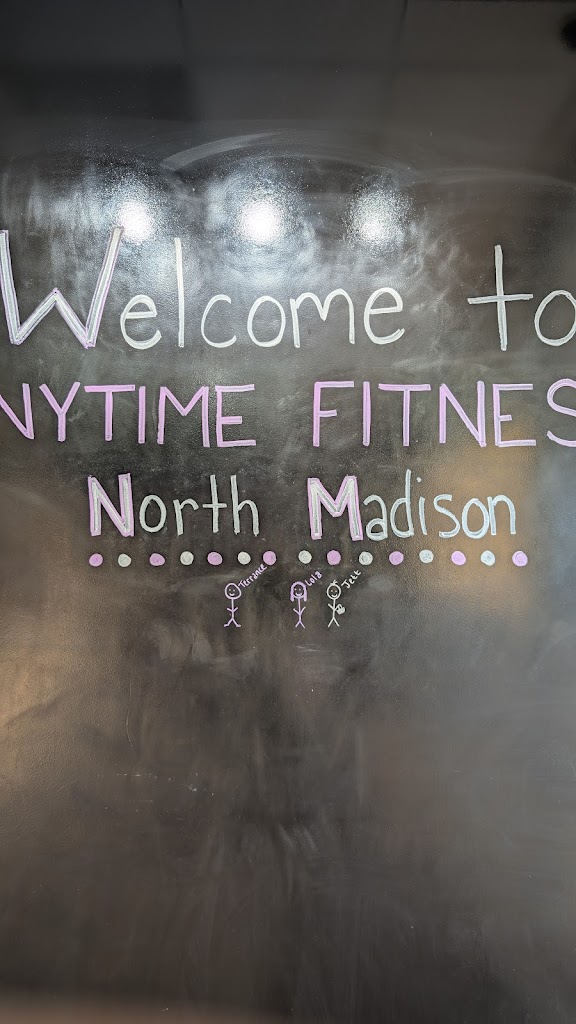 Welcome to
NYTIME FITNESS
North Madison
Terrance Lola Jett